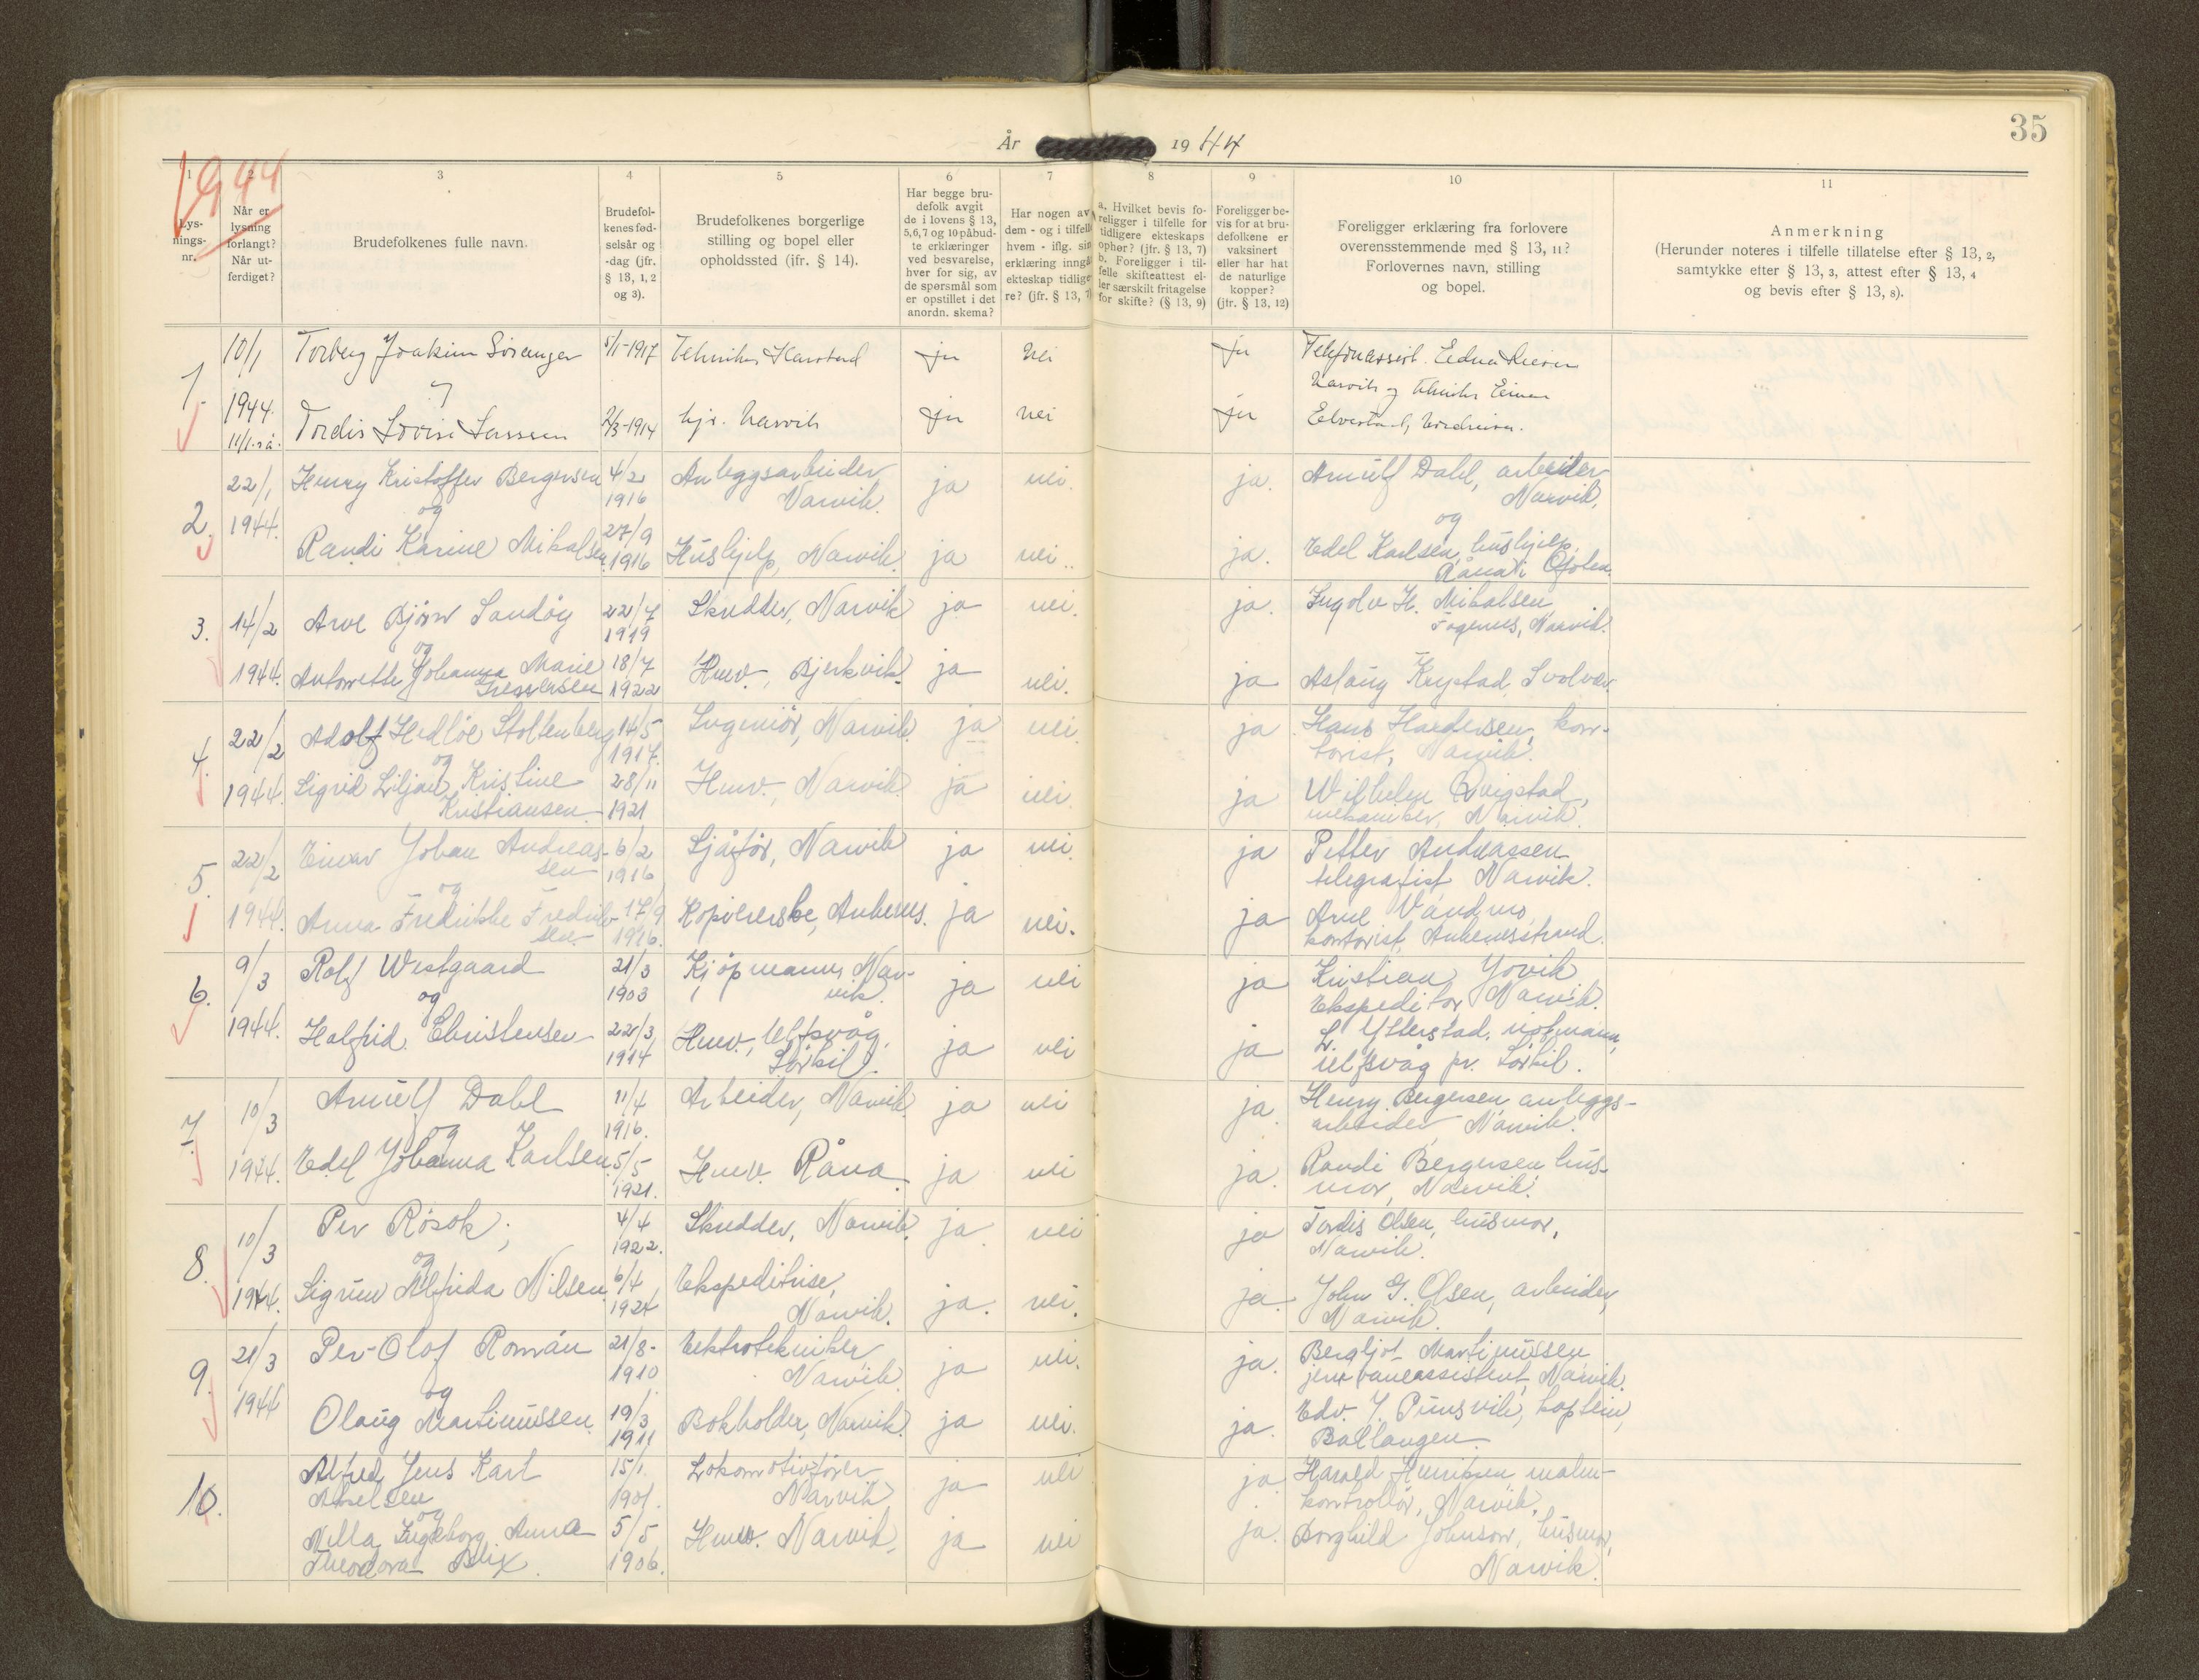 35
År 1944
1944
1
Lysnings-nr.
2
Når er lysning forlangt? Når utferdiget?
3
Brudefolkenes fulle navn.
4
Brudefolkenes fødselsår og -dag (jfr. § 13, 1, 2 og 3).
5
Brudefolkenes borgerlige stilling og bopel eller opholdssted (ifr. § 14).
6
Har begge brudefolk avgit de i lovens § 13, 5,6,7 og 10 påbudte erklæringer ved besvarelse, hver for sig, av de spørsmål som er opstillet i det anordn. skema?
7
Har nogen av dem - og i tilfelle hvem - iflg. sin erklæring inngå ekteskap tidligere? (jfr. § 13, 7)
8
a. Hvilket bevis foreligger i tilfelle for tidligere ekteskaps ophør? (jfr. § 13, 7) b. Foreligger i tilfelle skifteattest eller særskilt fritagelse for skifte? (§ 13, 9)
9
Foreligger bevis for at brudefolkene er vaksinert eller har hat de naturlige kopper? (jfr. § 13, 12)
10
Foreligger erklæring fra forlovere overensstemmende med § 13, 11? Forlovernes navn, stilling og bopel.
11
Anmerkning (Herunder noteres i tilfelle tillatelse efter § 13, 2, samtykke efter § 13, 3, attest efter § 13, 4 og bevis efter § 13, 8).
1. 10/1 Torberg Joakim 5/1-1917 Tekniker Harstad ja nei ja
og
1944. 11/1. s.å. Tordis Lovise Larssen 1914 Narvik ja nei ja
2. 22/1 Henry Kristoffer Bergersen 4/2 1916 Anleggsarbeider Narvik. ja nei. ja. Arnulf Dahl, arbeider Narvik,
og og
1944. Randi Karine Mikalsen 27/9 1916 Hushjelp, Narvik. ja nei. ja. Edel Karlsen, hushjelp, Råna i Ofoten.
3. 14/2 Arve Bjørn Sandøy 22/7 1919 Skredder, Narvik ja nei. ja. Ingolv H. Mikalsen, Fagernes, Narvik.
og
1944. Antonette Johanna Marie 18/7 1922 Hmv., Bjerkvik. ja nei. ja Aslaug Krystad, Svolvær.
4. 22/2 Adolf Hedløe Stoltenberg 14/5 1917. Ingeniør, Narvik. ja nei. ja Hans Hardersen, kontorist, Narvik.
og
1944. Sigrid Liljan Kristine Kristiansen 28/11 1921 Hmv., Narvik. ja nei. ja Wilhelm Qvigstad, mekaniker, Narvik.
5. 22/2 Einar Johan Andreassen 6/2 1916 Sjåfør, Narvik ja nei. ja Petter Andreassen telegrafist Narvik.
og
1944. Anna Fredrikke Fredriksen 17/9 1916. Kopiererske, Ankenes. ja nei. ja Arne Vandmo, kontorist, Ankenesstrand.
6. 9/3 Rolf Westgaard 21/3 1903 Kjøpmann, Narvik. ja nei ja Kristian Jovik Ekspeditør Narvik.
og
1944. Halfrid Christensen 22/3 1914 Hmv., Ulfsvåg, Sørkil. ja nei ja L. Ytterstad, Ulfsvåg pr. Sørkil.
7. 10/3 Arnulf Dahl 11/4 1916. Arbeider, Narvik. ja nei ja Henry Bergersen anleggsarbeider Narvik.
og
1944. Edel Johanna Karlsen 5/5 1921. Hmv. Råna. ja nei ja. Randi Bergersen, husmor, Narvik.
8. 10/3 Per Røsok, 4/4 1922. Skredder, Narvik. ja nei ja Tordis Olsen, husmor, Narvik.
og
1944. Sigrun Alfrida Nilsen 6/4 1924 Ekspeditrise, Narvik. ja. nei. ja John G. Olsen, arbeider, Narvik.
9. 21/3 Per-Olof Román 21/8- 1910 Elektrotekniker Narvik. ja nei. ja. Bergljot Martinussen jernbaneassistent, Narvik.
og
1944 Olaug Martinussen 19/3 1911 Bokholder, Narvik. ja nei. ja. Edv. J. Pünsvik, kaptein, Ballangen.
10. Alfred Jens Karl Akselsen 15/1. 1901. Lokomotivfører Narvik ja nei ja Harald Henriksen malmkontrollør, Narvik.
og
Nella Ingeborg Anna Theodora Blix. 5/5 1906. Hmv. Narvik. ja nei ja. Borghild Johnson, husmor, Narvik.